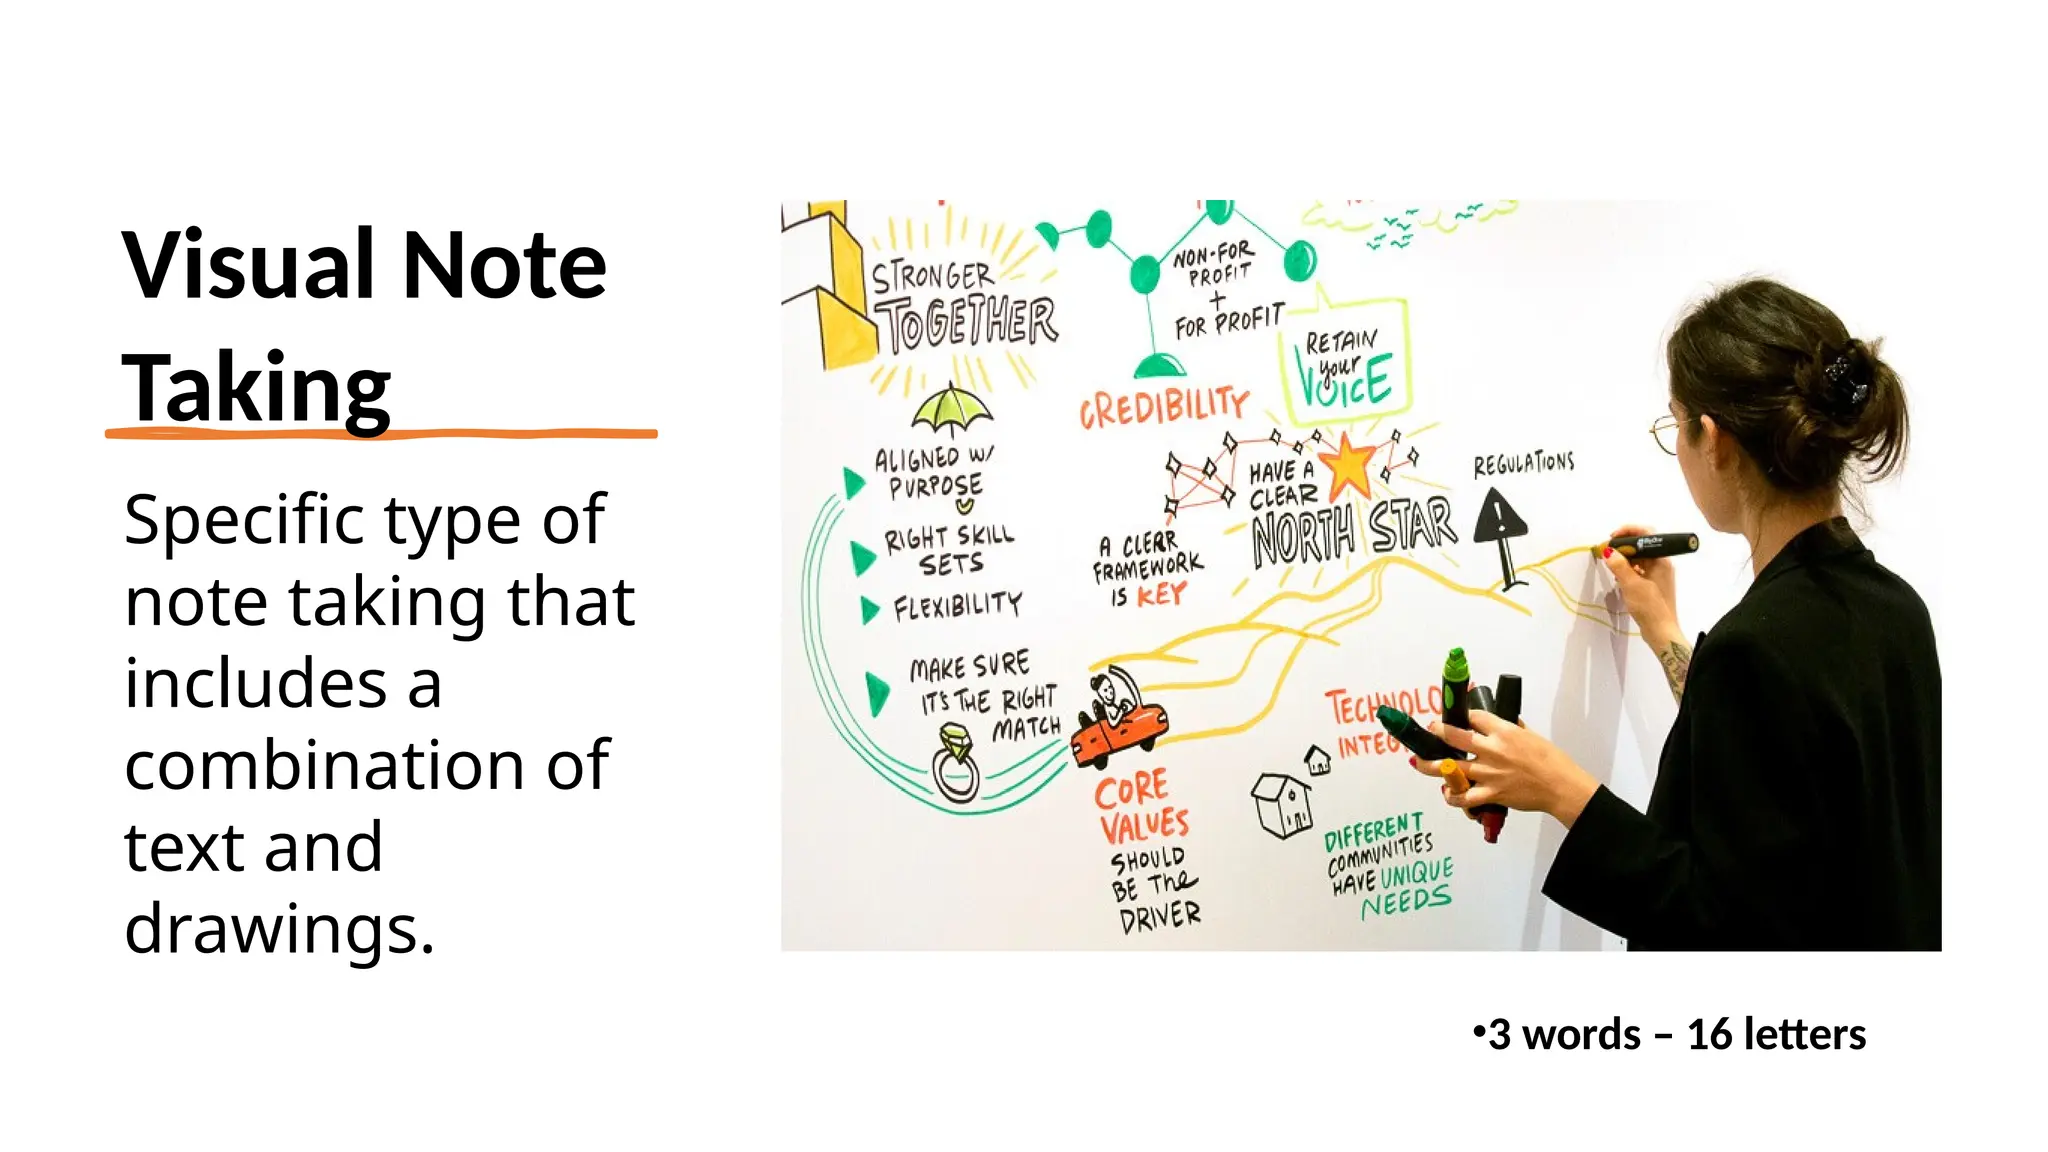 Visual Note
Taking
Specific type of
note taking that
includes a
combination of
text and
drawings.
STRONGER
TOGETHER
NON-FOR
PROFIT
+
FOR PROFIT
RETAIN
your
VOICE
CREDIBILITY
ALIGNED W/
PURPOSE
RIGHT SKILL
SETS
FLEXIBILITY
MAKE SURE
IT'S THE RIGHT
MATCH
HAVE A
CLEAR
NORTH STAR
A CLEAR
FRAMEWORK
IS KEY
REGULATIONS
!
CORE
VALUES
SHOULD
BE The
DRIVER
DIFFERENT
COMMUNITIES
HAVE UNIQUE
NEEDS
•3 words – 16 letters